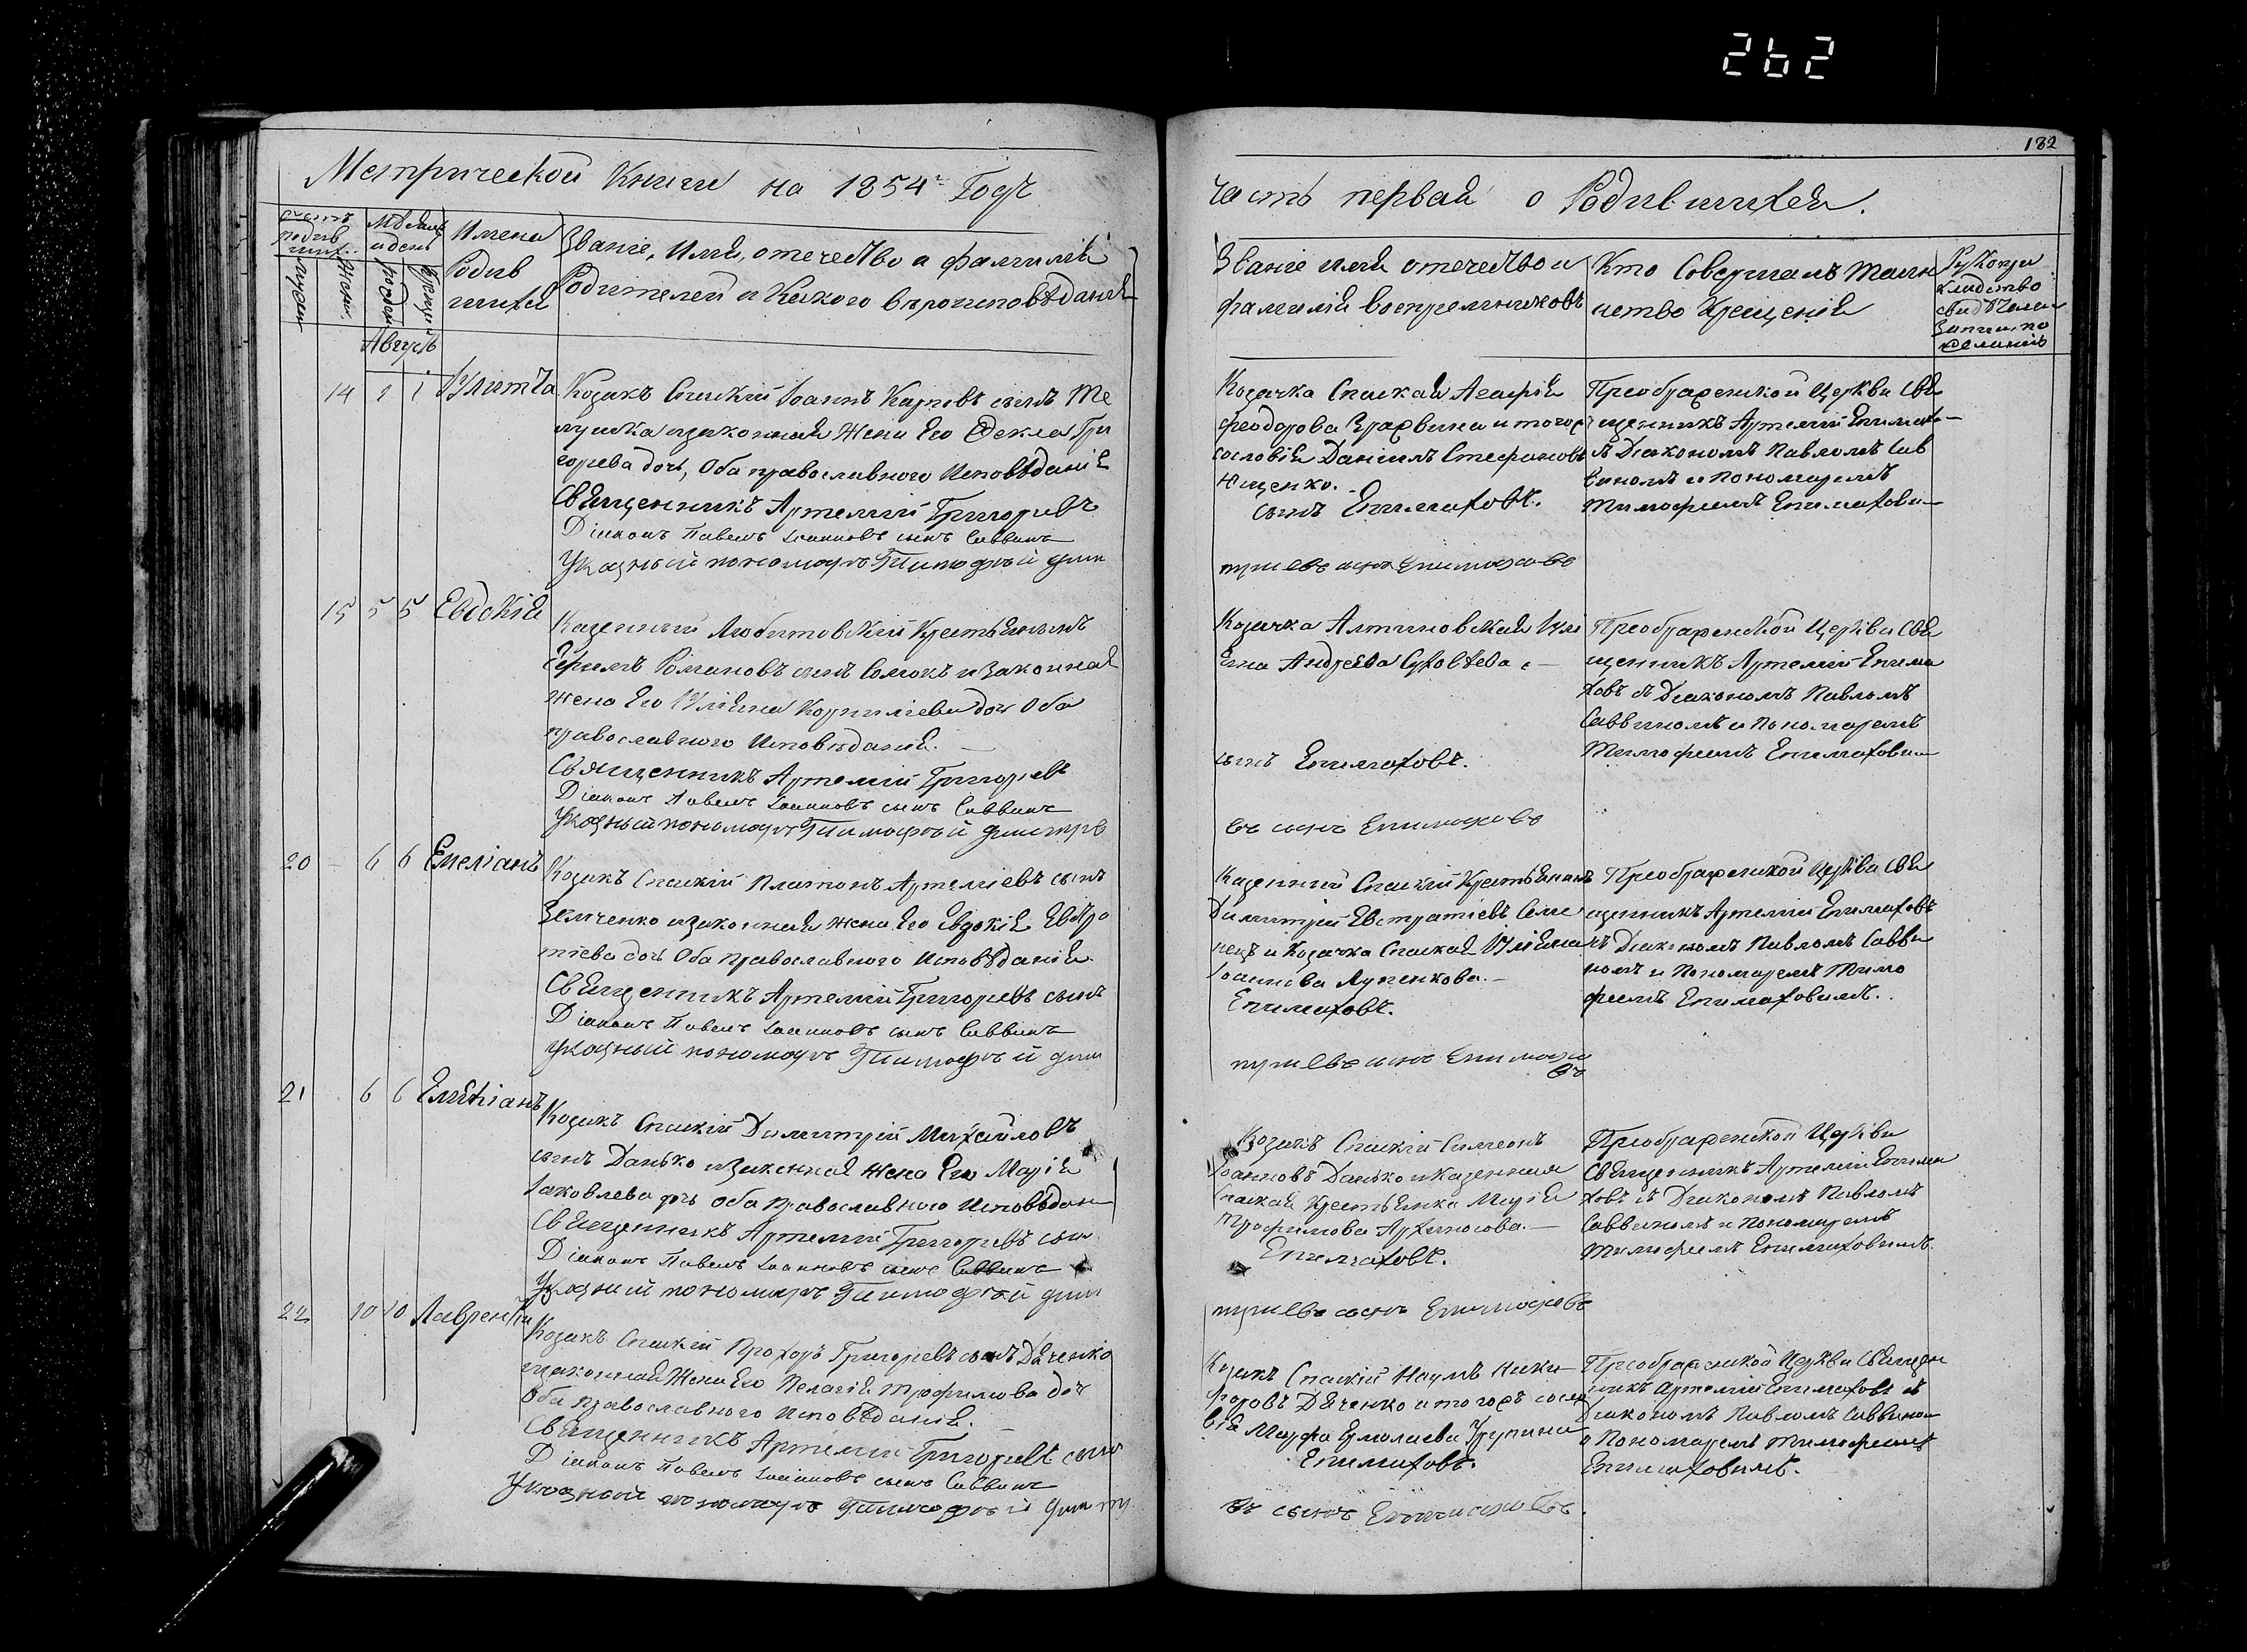 262
182
Метрической Книги на 1854 Годъ
часть первая о Родившихся.
счетъ родив ших.
Мѣсяцъ и день
Имена Родив шихся
Званіе, Имя, отечество и фамилія
Родителей и Какого вѣроисповѣданія
Званіе имя отечество и
фамилія воспремниковъ
Кто Совершалъ таин
ство Крещенія
Рукопри
Август
14 1 1 Улитта
Козакъ Спаскій Іоаннъ Карповъ сынъ
и законная Жена Его Фекла Гри
горьева дочь, Оба православного Исповѣданія
Священникъ Артемій Григорьевъ
Діаконъ Павелъ Іоанновъ сынъ Саввинъ
Указный пономарь Тимофѣй Дим
Козачка Спаская Агафія
Феодорова и тогож
сословія Даніилъ Стефановъ
Ященко.
сынъ Епимаховъ.
тріевъ сынъ Епимаховъ
Преображенской Церкви Свя
щенникъ Артемій Епимахо
съ Діакономъ Павломъ Сав
виномъ и Пономаремъ
Тимофеемъ Епимахови
15 5 5 Евдокія
Казенный Любитовскій Крестьянинъ
Романовъ сынъ Сомокъ и Законная
жена Его Уліяна Корниліева дочь Оба
православного Исповѣданія.
Священникъ Артемій Григорьевъ
Діаконъ Павелъ Іоанновъ сынъ Саввинъ
Указный пономарь Тимофѣй Димитрі
Козачка Алтиновская Улі
яна Андреева
сынъ Епимаховъ.
въ сынъ Епимаховъ
Преображенской Церкви Свя
щенникъ Артемій Епима
ховъ съ Діакономъ Павломъ
Саввиномъ и Пономаремъ
Тимофеемъ Епимахови
20 - 6 6 Емеліанъ
Козакъ Спаскій Платонъ Артеміевъ сынъ
Зѣнченко и законная жена Его Евдокія Евстра
тіева дочь Оба Православного Исповѣданія
Священникъ Артемій Григорьевъ сынъ
Діаконъ Павелъ Іоанновъ сынъ Саввинъ
Указный пономарь Тимофѣй Дими
Казенный Спаскій Крестьянинъ
Димитрій Евстратіевъ Семе
нецъ и Козачка Спаская Уліяна
Іоаннова Лупенкова.
Епимаховъ.
тріевъ сынъ Епимахо
въ
Преображенской Церкви Свя
щенникъ Артемій Епимаховъ
съ Діакономъ Павломъ Савви
номъ и Пономаремъ Тимо
феемъ Епимаховимъ.
21 6 6 Емѣліанъ
Козакъ Спаскій Димитрій Михайловъ
сынъ Данько и Законная Жена Его Марія
Іаковлева дочь Оба Православного Исповѣдан
Священникъ Артемій Григорьевъ сын
Діаконъ Павелъ Іоанновъ сынъ Саввинъ
Указный пономарь Тимофѣй Дими
Козакъ Спаскій Симеонъ
Іоанновъ Данько и Казенная
Спаская Крестьянка Марія
Трофимова
Епимаховъ.
тріевъ сынъ Епимаховъ
Преображенской Церкви
Священникъ Артемій Епима
ховъ съ Діакономъ Павломъ
Саввиномъ и Пономаремъ
Тимофеемъ Епимаховимъ
22 10 10 Лаврентій
Козакъ Спаскій Прохоръ Григорьевъ сынъ Дяченко
и законная Жена Его Пелагія Трофимова доч
Оба Православного Исповѣданія.
Священникъ Артемій Григорьевъ сынъ
Діаконъ Павелъ Іоанновъ сынъ Саввинъ
Указный пономарь Тимофѣй Димитр
Козакъ Спаскій Наумъ Ники
форовъ Дяченко и тогожъ сосло
вія Марфа Ермолаева
Епимаховъ.
въ сынъ Епимаховъ.
Преображенской Церкви Священ
никъ Артемій Епимаховъ съ
Діакономъ Павломъ Саввином
и Пономаремъ Тимофеемъ
Епимаховимъ.